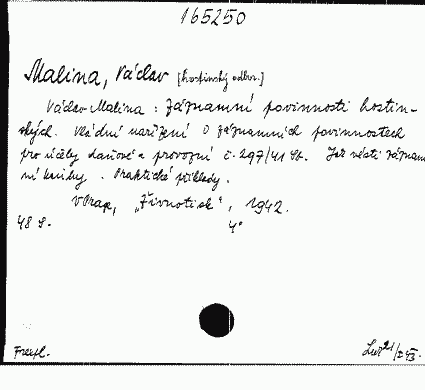 165250
Malina, Václav [hostinský odbor.]
Václav Malina: Záznamní povinnosti hostin-
ských. Vládní nařízení o záznamních povinnostech
pro účely daňové a provozní č. 297/41 Sb. Jak vésti záznam
ní knihy. Praktické příklady.
V Praze, "Živnotisk", 1942.
48 s. 4°
Lur 21/I 43.